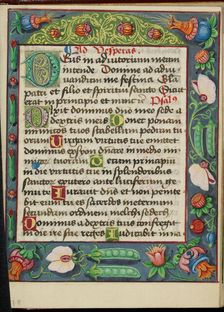 Ad Vesperas
Deus in adiutorium meum
intende Domine ad adiu
uandum me festina Glori
patri et filio et spiritui sancto Sicut
erat in principio et nunc Psal9
Dixit dominus dno meo sede
a dextris meis Donec ponam
inimicos tuos scabellum pedum tu
orum Uirgam uirtutis tue emittet
dominus exsyon dnare in medio inimi
corum tuorum Tecum principium
in die uirtutis tue in splendoribus
sanctor ex utero ante luciferum ge
nui te Iurauit dns et non penite
bit eum tu es sacerdos ineternum
secundum ordinem melchisedech
Dominus a dextris tuis confregit
in die ire sue reges Iudicabit in na